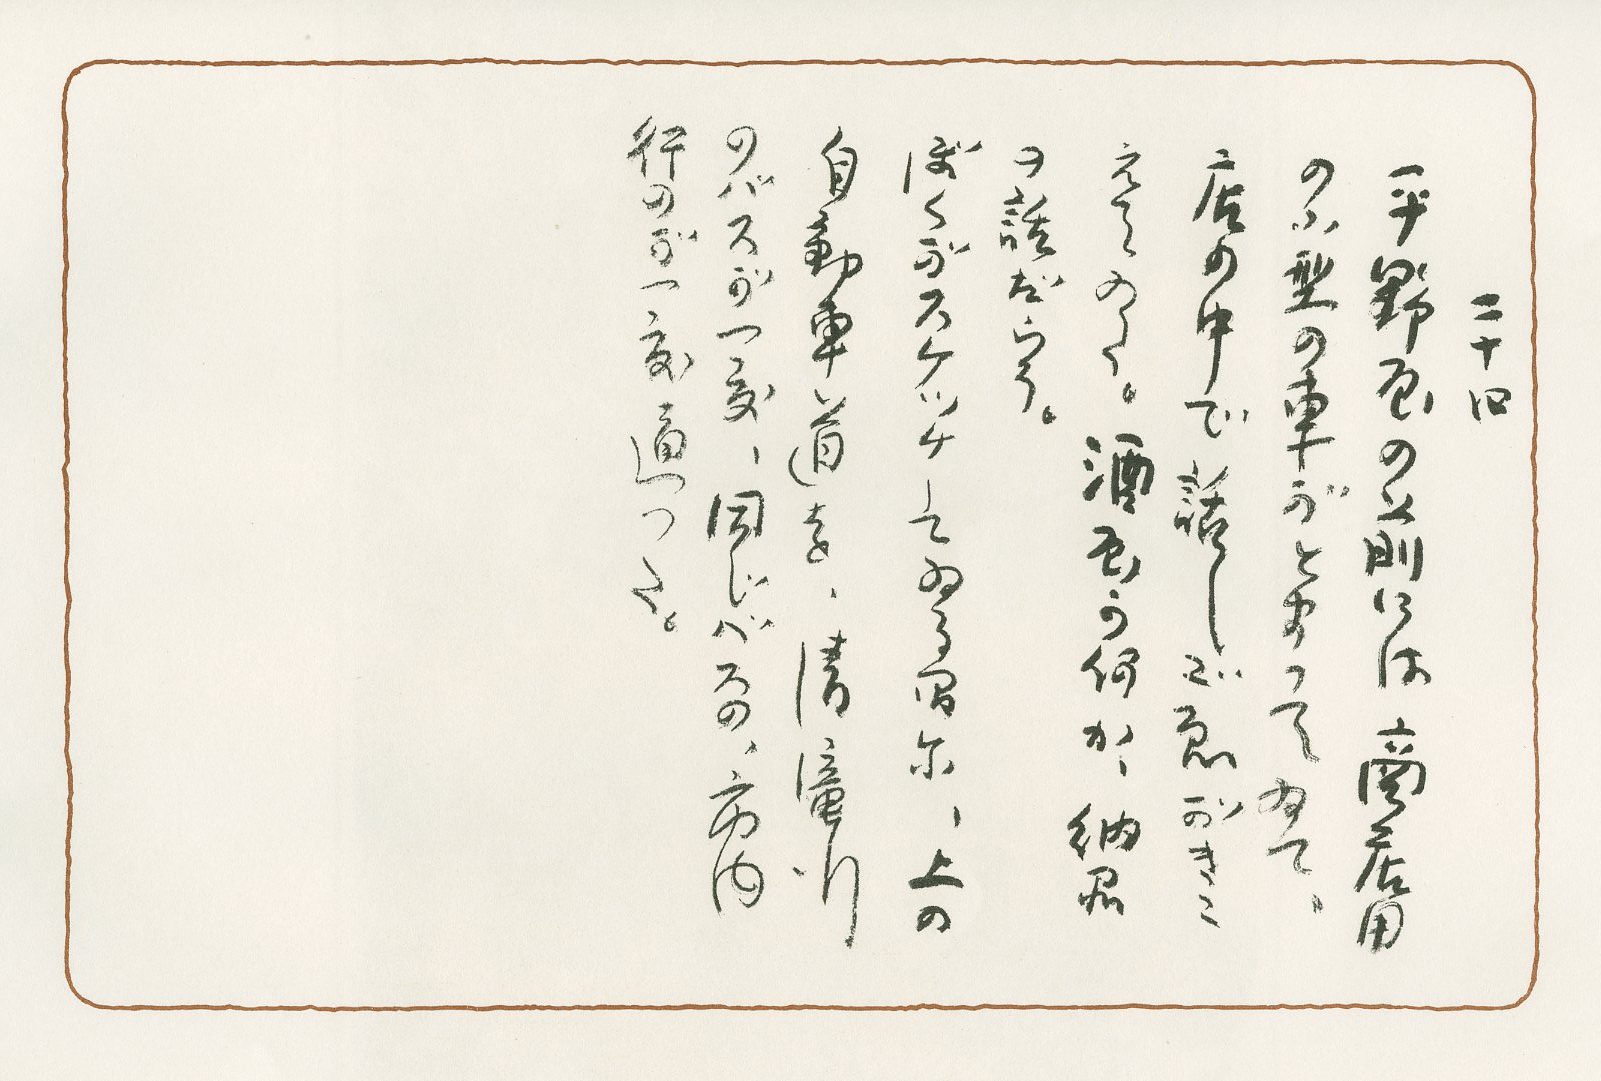 二十四
平野屋の前には商店用
の小型の車がとまつてゐて、
店の中で話しごゑがきこ
えてゐた。酒屋か何か、納品
の話だらう。
ぼくがスケッチしてゐる間に、上の
自動車道を、清滝行
のバスが一度、同じバスの、市内
行のが一度通つた。